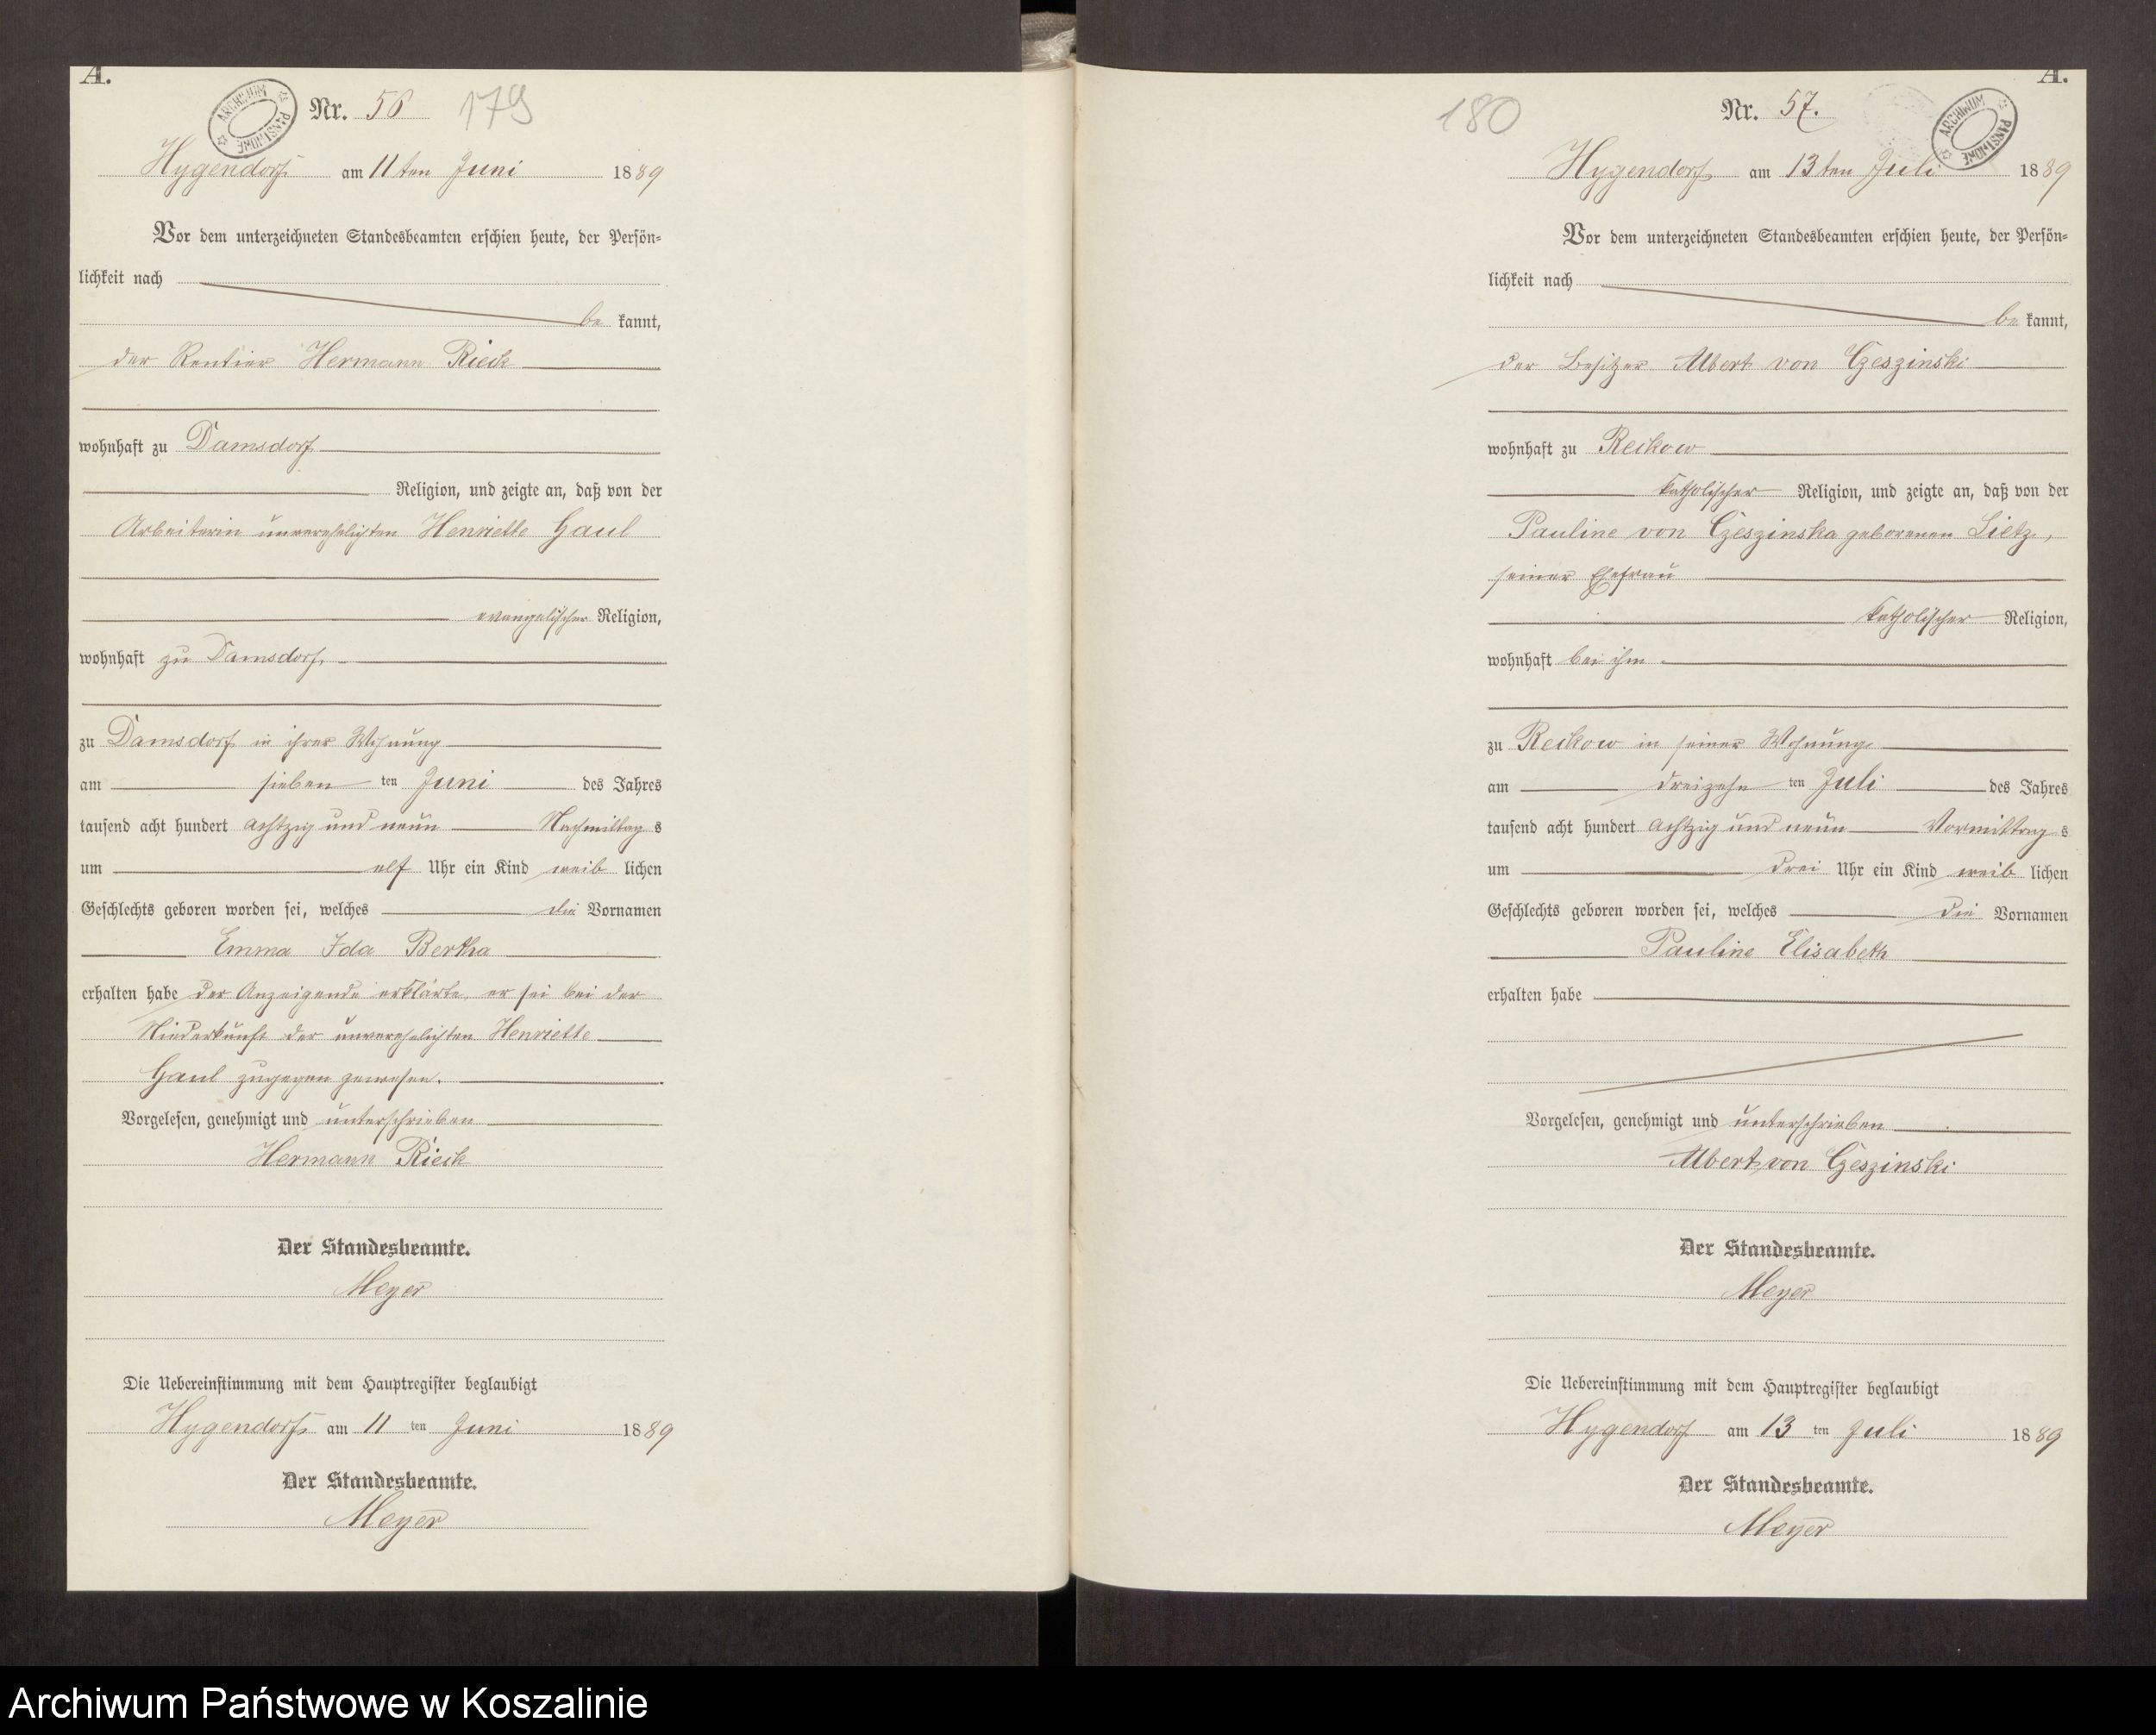 A.
ARCHIWUM PAŃSTWOWE
Nr. 56
179
Hygendorf am 11ten Juni 1889
Vor dem unterzeichneten Standesbeamten erschien heute, der Persön-
lichkeit nach
be kannt,
der Rentier Hermann Rieck
wohnhaft zu Damsdorf
Religion, und zeigte an, daß von der
Arbeiterin unverehelichten Henriette Gaul
evangelischer Religion,
wohnhaft zu Damsdorf,
zu Damsdorf in ihrer Wohnung
am sieben ten Juni des Jahres
tausend acht hundert achtzig und neun Nachmittag s
um elf Uhr ein Kind weib lichen
Geschlechts geboren worden sei, welches die Vornamen
Emma Ida Bertha
erhalten habe der Anzeigende erklärte, er sei bei der
Niederkunft der unverehelichten Henriette
Gaul zugegen gewesen.
Vorgelesen, genehmigt und unterschrieben
Hermann Rieck
Der Standesbeamte.
Meyer
Die Uebereinstimmung mit dem Hauptregister beglaubigt
Hygendorf am 11 ten Juni 1889
Der Standesbeamte.
Meyer
A.
180
Nr. 57.
ARCHIWUM PAŃSTWOWE
Hygendorf am 13ten Juli 1889
Vor dem unterzeichneten Standesbeamten erschien heute, der Persön-
lichkeit nach
be kannt,
der Besitzer Albert von Czeszinski
wohnhaft zu Reckow
katholischer Religion, und zeigte an, daß von der
Pauline von Czeszinska geborenen Lietz,
seiner Ehefrau
katholischer Religion,
wohnhaft bei ihm
zu Reckow in seiner Wohnung
am dreizehn ten Juli des Jahres
tausend acht hundert achtzig und neun Vormittag s
um drei Uhr ein Kind weib lichen
Geschlechts geboren worden sei, welches die Vornamen
Pauline Elisabeth
erhalten habe
Vorgelesen, genehmigt und unterschrieben
Albert von Czeszinski
Der Standesbeamte.
Meyer
Die Uebereinstimmung mit dem Hauptregister beglaubigt
Hygendorf am 13 ten Juli 1889
Der Standesbeamte.
Meyer
Archiwum Państwowe w Koszalinie